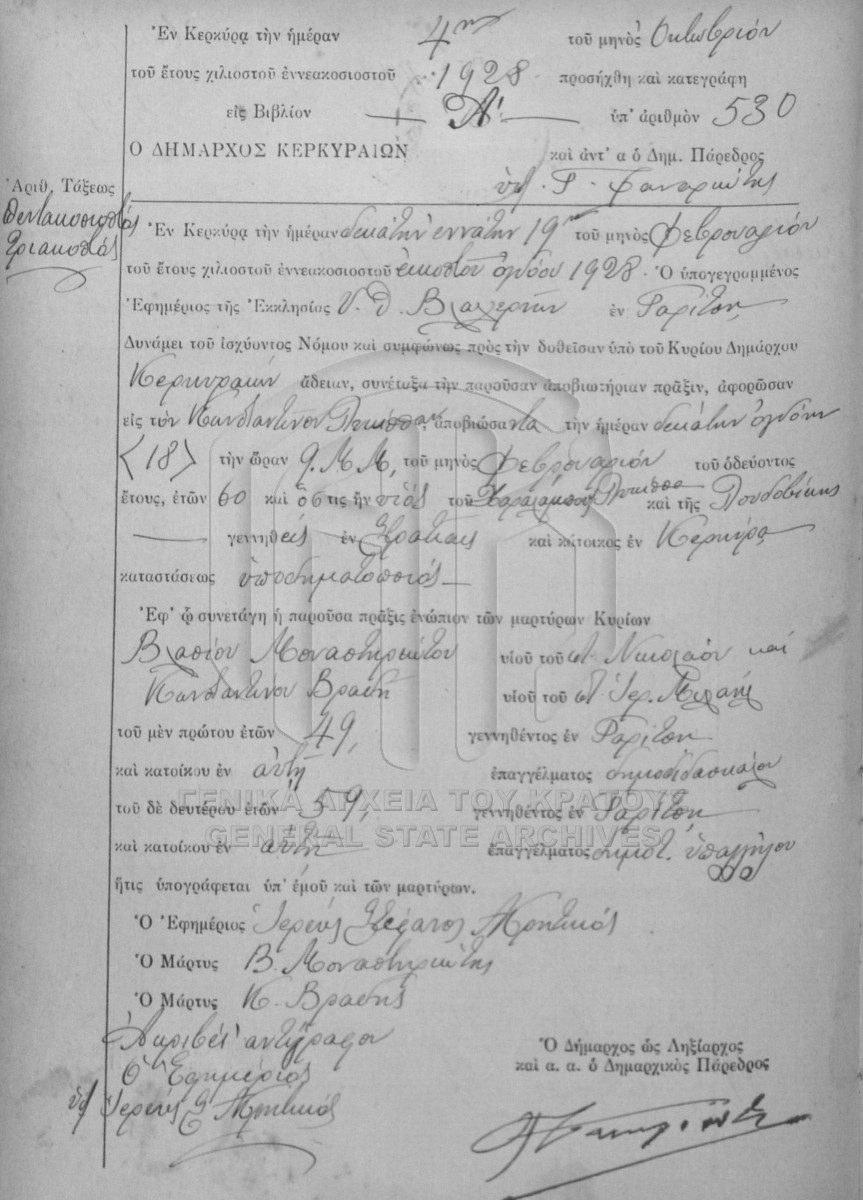 Ἐν Κερκύρᾳ τὴν ἡμέραν 4ην τοῦ μηνὸς Ὀκτωβρίου
τοῦ ἔτους χιλιοστοῦ ἐννεακοσιοστοῦ 1928 προσήχθη καὶ κατεγράφη
εἰς Βιβλίον — Α! — ὑπ' ἀριθμὸν 530
Ο ΔΗΜΑΡΧΟΣ ΚΕΡΚΥΡΑΙΩΝ
καὶ ἀντ' α ὁ Δημ. Πάρεδρος
Ἀριθ. Τάξεως
Ἐν Κερκύρᾳ τὴν ἡμέραν δεκάτην ἐννάτην 19ην τοῦ μηνὸς Φεβρουαρίου
τοῦ ἔτους χιλιοστοῦ ἐννεακοσιοστοῦ εἰκοστοῦ ὀγδόου 1928. Ὁ ὑπογεγραμμένος
Ἐφημέριος τῆς Ἐκκλησίας Υ. Θ. Βλαχερνῶν ἐν Γαρίτσῃ
Δυνάμει τοῦ ἰσχύοντος Νόμου καὶ συμφώνως πρὸς τὴν δοθεῖσαν ὑπὸ τοῦ Κυρίου Δημάρχου
Κερκυραίων ἄδειαν, συνέταξα τὴν παροῦσαν ἀποβιωτήριαν πρᾶξιν, ἀφορῶσαν
εἰς τὸν Κωνσταντῖνον ἀποβιώσαντα τὴν ἡμέραν δεκάτην ὀγδόην
<18> τὴν ὥραν 9. Μ.Μ. τοῦ μηνὸς Φεβρουαρίου τοῦ ὁδεύοντος
ἔτους, ἐτῶν 60 καὶ ὅστις ἦν υἱὸς τοῦ καὶ τῆς Λουδοβίκης
— γεννηθεὶς ἐν καὶ κάτοικος ἐν Κερκύρᾳ
καταστάσεως ὑποδηματοποιός —
Ἐφ' ᾧ συνετάγη ἡ παροῦσα πρᾶξις ἐνώπιον τῶν μαρτύρων Κυρίων
Βλασίου Μοναστηριώτου υἱοῦ τοῦ Νικολάου καὶ
Κωνσταντίνου Βραδῆ υἱοῦ τοῦ
τοῦ μὲν πρώτου ἐτῶν 49, γεννηθέντος ἐν Γαρίτσῃ
καὶ κατοίκου ἐν αὐτῇ ἐπαγγέλματος δημοδιδασκάλου
τοῦ δὲ δευτέρου ἐτῶν 59, γεννηθέντος ἐν Γαρίτσῃ
καὶ κατοίκου ἐν αὐτῇ ἐπαγγέλματος δημοτ. ὑπαλλήλου
ἥτις ὑπογράφεται ὑπ' ἐμοῦ καὶ τῶν μαρτύρων.
Ὁ Ἐφημέριος Ἱερεὺς
Ὁ Μάρτυς Β. Μοναστηριώτης
Ὁ Μάρτυς Κ. Βραδῆς
Ἀκριβὲς ἀντίγραφον
Ὁ Ἐφημέριος
Ἱερεὺς
Ὁ Δήμαρχος ὡς Ληξίαρχος
καὶ α. α. ὁ Δημαρχικὸς Πάρεδρος
ΓΕΝΙΚΑ ΑΡΧΕΙΑ ΤΟΥ ΚΡΑΤΟΥΣ
GENERAL STATE ARCHIVES